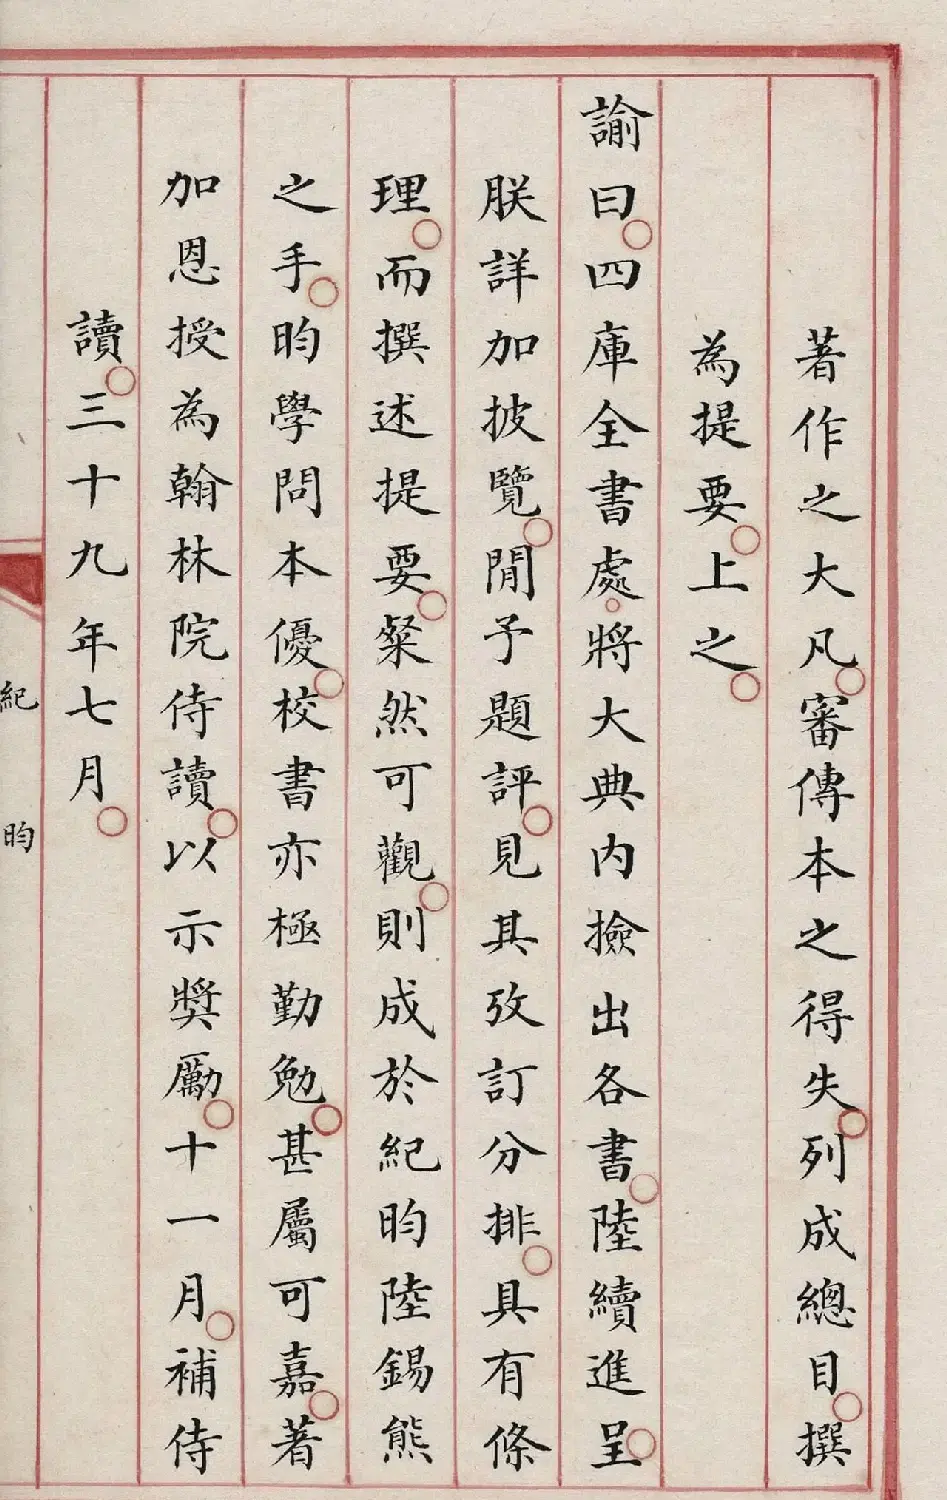 著作之大凡○審傳本之得失○列成總目○撰
為提要○上之○
諭曰○四庫全書處○將大典內撿出各書○陸續進呈○
朕詳加披覽○閒予題評○見其攷訂分排○具有條
理○而撰述提要○粲然可觀○則成於紀昀陸錫熊
之手○昀學問本優○校書亦極勤勉○甚屬可嘉○著
加恩授為翰林院侍讀○以示獎勵○十一月○補侍
讀○三十九年七月○
紀昀